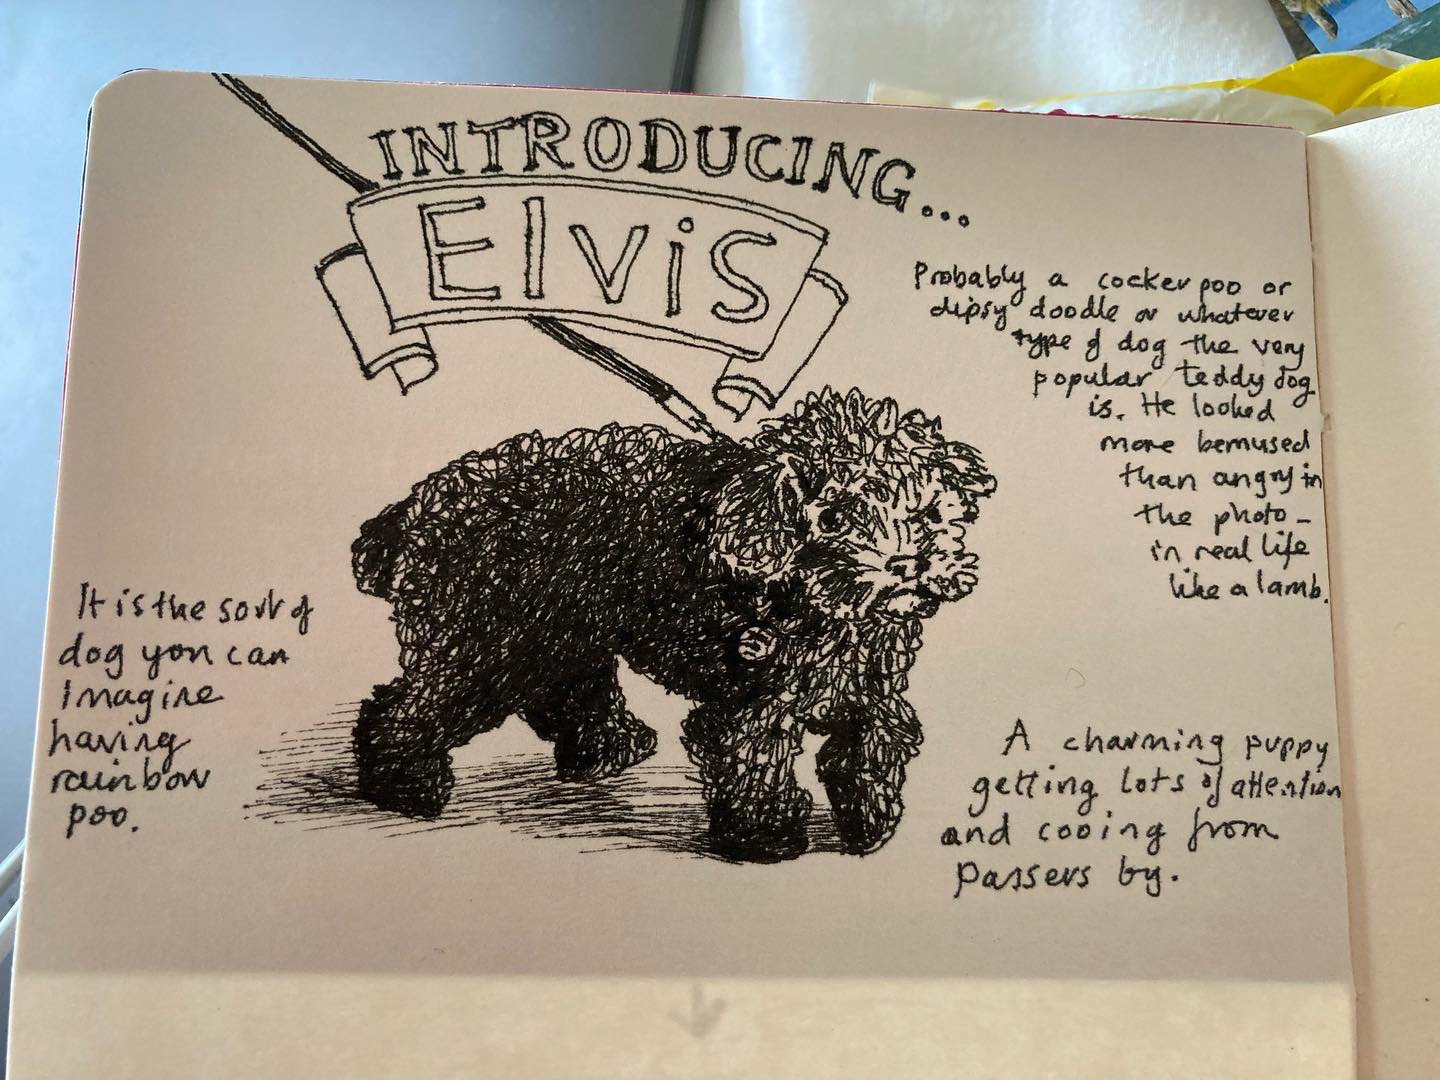 INTRODUCING...
ElviS
Probably a cockerpoo or
dipsy doodle or whatever
type of dog the very
popular teddy dog
is. He looked
more bemused
than angry in
the photo -
in real life
like a lamb.
It is the sort of
dog you can
imagine
having
rainbow
poo.
A charming puppy
getting lots of attention
and cooing from
passers by.